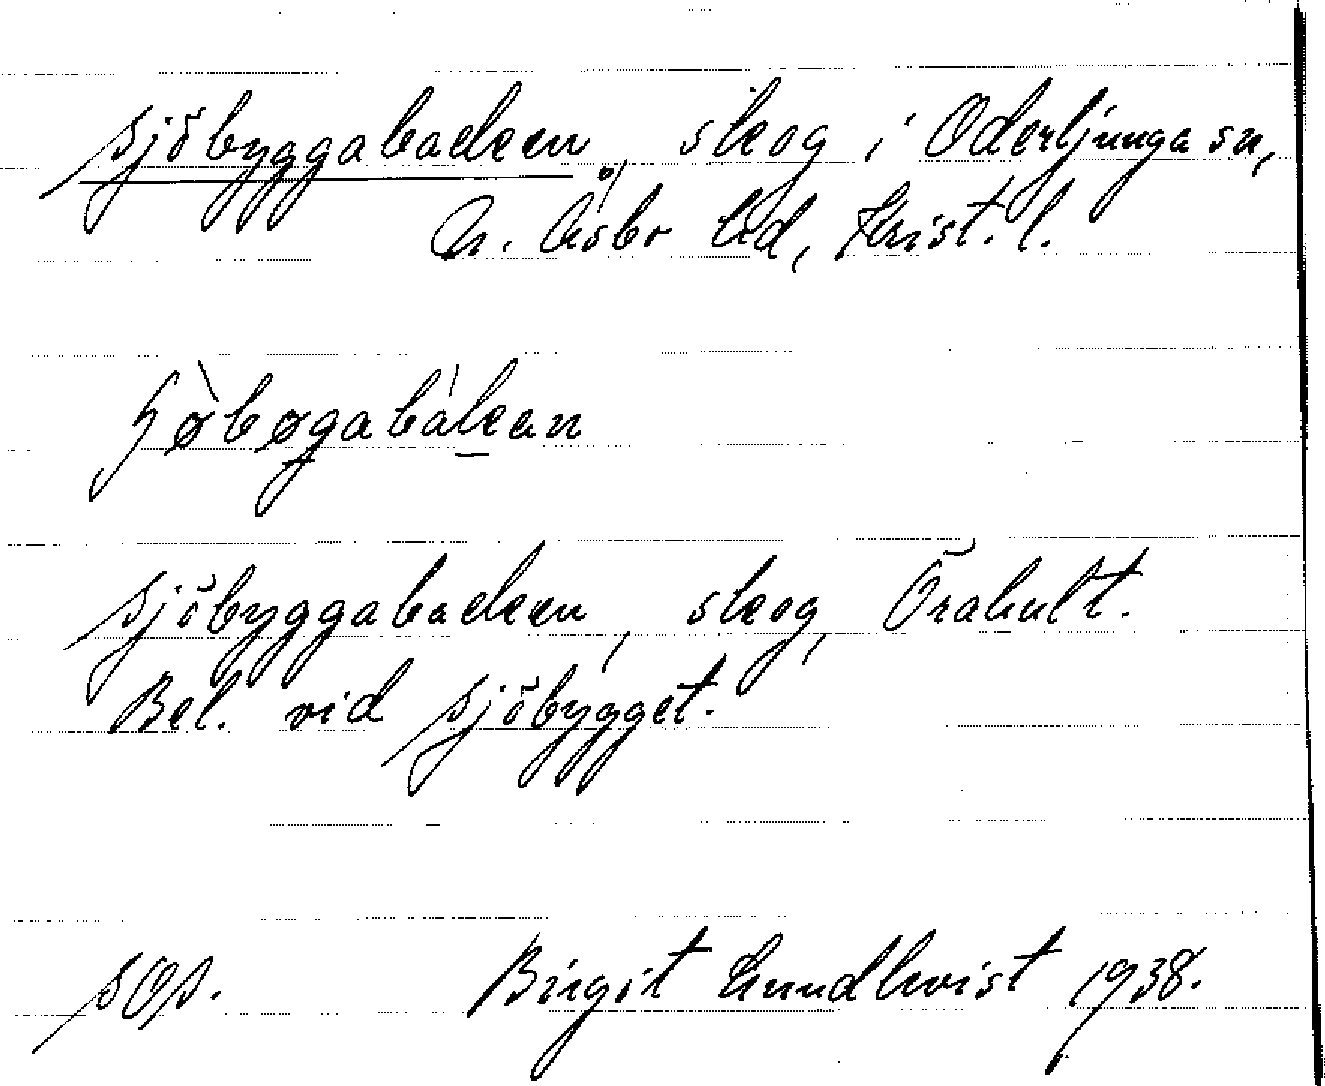 Sjöbyggabacken, skog i Oderljunga sn,
N. Åsbo hd, Krist. l.
ʃø̀bøgabákan
Sjöbyggabacken, skog, Örahult.
Bel. vid Sjöbygget.
SOS. Birgit Lundkvist 1938.